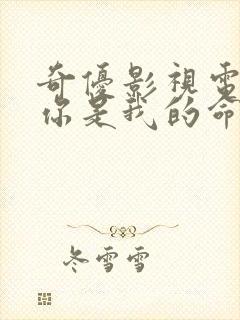 奇優影視電
你是我的命
冬雪雪